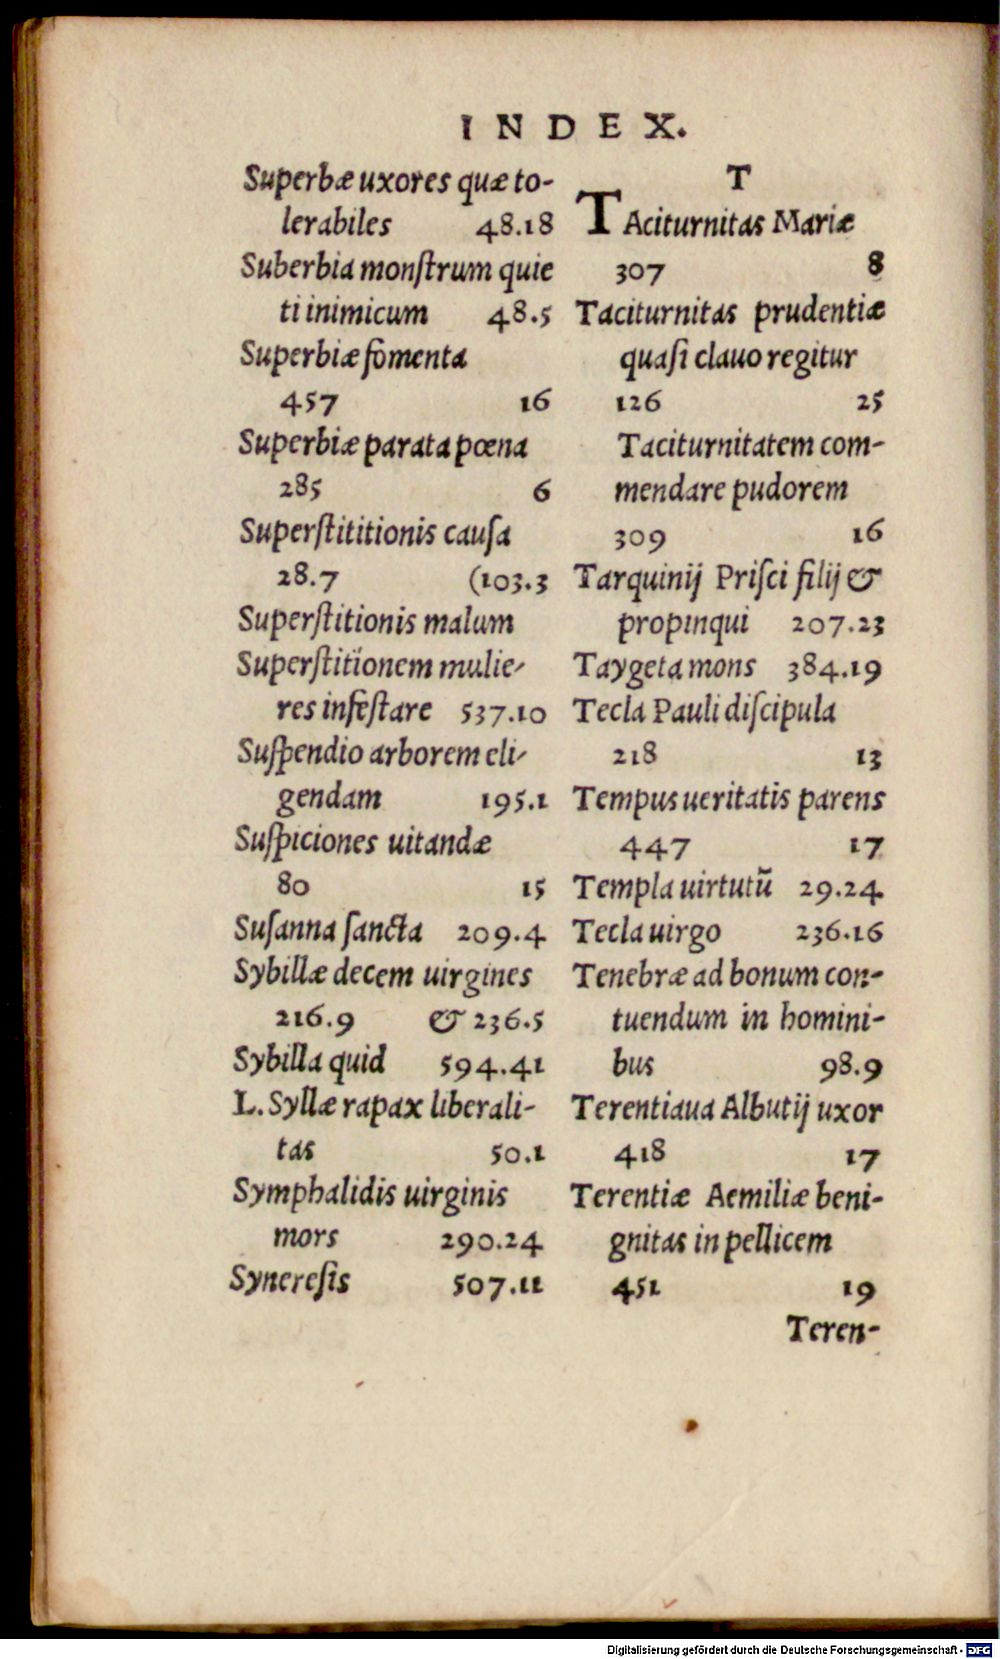 INDEX.
Superbæ uxores quæ to-
lerabiles 48.18
Suberbia monſtrum quie
ti inimicum 48.5
Superbiæ fomenta
457 16
Superbiæ parata pœna
285 6
Superſtititionis cauſa
28.7 (103.3
Superſtitionis malum
Superſtitionem mulie-
res infeſtare 537.10
Suſpendio arborem eli-
gendam 195.1
Suſpiciones uitandæ
80 15
Suſanna ſancta 209.4
Sybillæ decem uirgines
216.9 & 236.5
Sybilla quid 594.41
L. Syllæ rapax liberali-
tas 50.1
Symphalidis uirginis
mors 290.24
Synereſis 507.11
T
TAciturnitas Mariæ
307 8
Taciturnitas prudentiæ
quaſi clauo regitur
126 25
Taciturnitatem com-
mendare pudorem
309 16
Tarquinij Priſci filij &
propinqui 207.23
Taygeta mons 384.19
Tecla Pauli diſcipula
218 13
Tempus ueritatis parens
447 17
Templa uirtutũ 29.24
Tecla uirgo 236.16
Tenebræ ad bonum con-
tuendum in homini-
bus 98.9
Terentiaua Albutij uxor
418 17
Terentiæ Aemiliæ beni-
gnitas in pellicem
451 19
Teren-
Digitalisierung gefördert durch die Deutsche Forschungsgemeinschaft - DFG